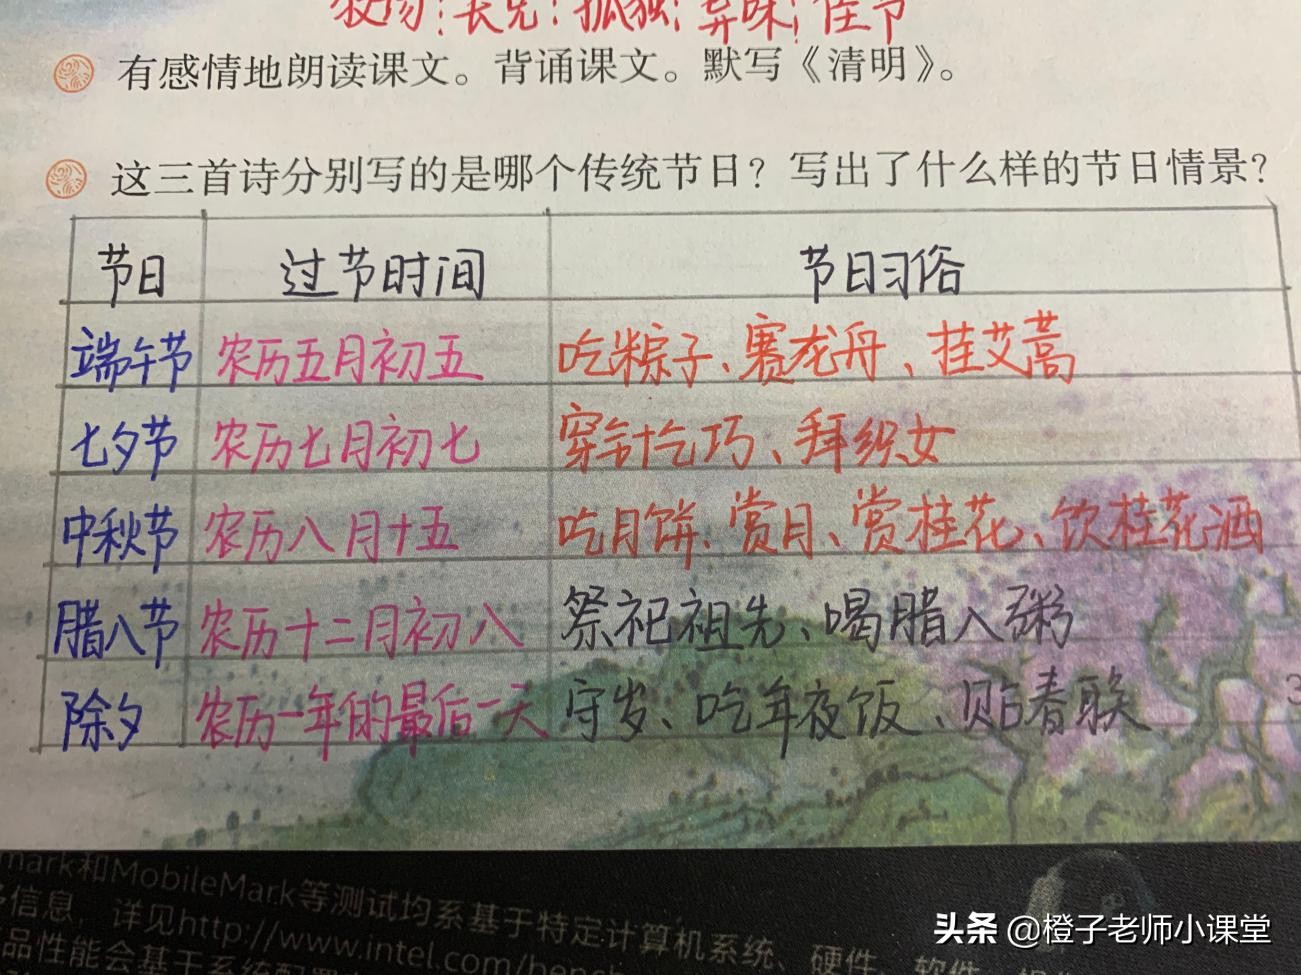 牧场：长兄：孤独：异味：佳节
有感情地朗读课文。背诵课文。默写《清明》。
这三首诗分别写的是哪个传统节日？写出了什么样的节日情景？
节日 过节时间 节日习俗
端午节 农历五月初五 吃粽子、赛龙舟、挂艾蒿
七夕节 农历七月初七 穿针乞巧、拜织女
中秋节 农历八月十五 吃月饼、赏月、赏桂花、饮桂花酒
腊八节 农历十二月初八 祭祀祖先、喝腊八粥
除夕 农历一年的最后一天 守岁、吃年夜饭、贴春联
3
mark和MobileMark等测试均系基于特定计算机系统、硬件、软件、
信息，详见http://www.intel.com/bench
品性能会基于系统配置
头条 @橙子老师小课堂